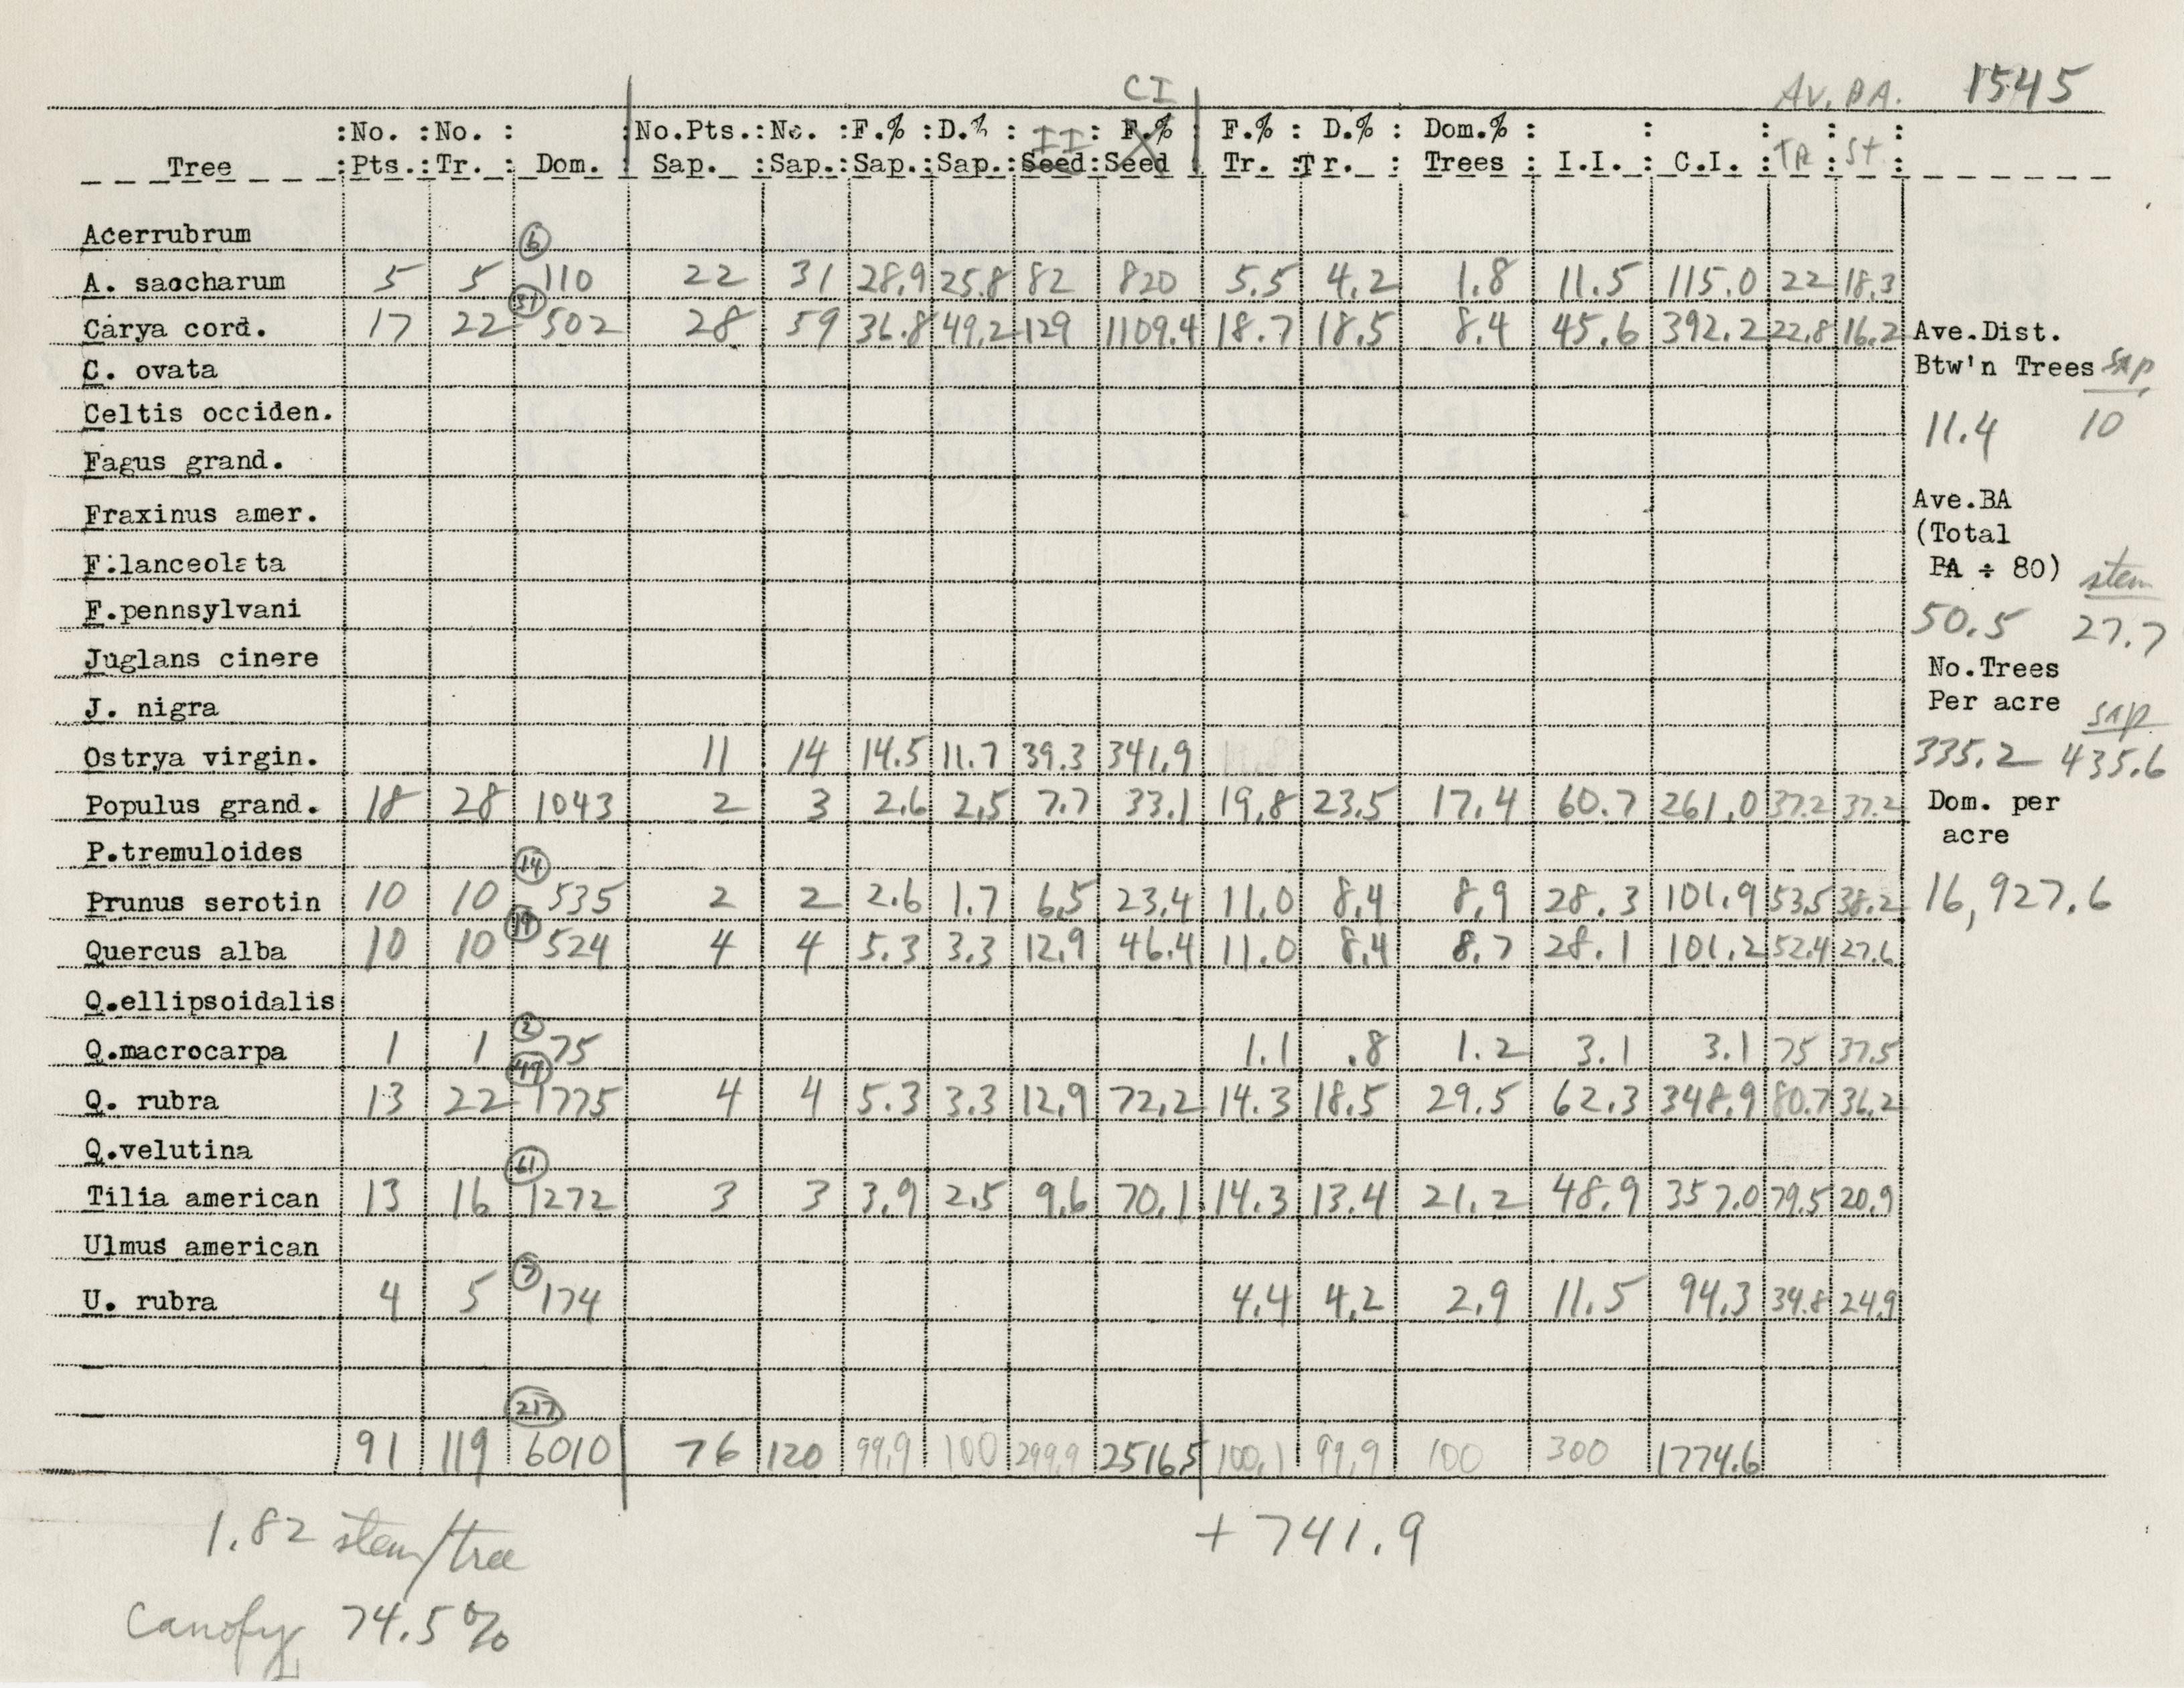 CI AV. BA. 1545
:No. :No. : :No.Pts.:No. :F.% :D.% : II : F.% : F.% : D.% : Dom.% : : : : :
Tree :Pts.:Tr. : Dom. : Sap. :Sap.:Sap.:Sap.:Seed:Seed : Tr. :Tr. : Trees : I.I. : C.I. : TR : St :
Acerrubrum
6
A. saccharum 5 5 110 22 31 28.9 25.8 82 820 5.5 4.2 1.8 11.5 115.0 22 18.3
31
Carya cord. 17 22 502 28 59 36.8 49.2 129 1109.4 18.7 18.5 8.4 45.6 392.2 22.8 16.2
Ave.Dist.
C. ovata
Btw'n Trees Sap
Celtis occiden.
11.4 10
Fagus grand.
Ave.BA
Fraxinus amer.
(Total
F.lanceolata
BA ÷ 80) stem
F.pennsylvani
50.5 27.7
Juglans cinere
No.Trees
J. nigra
Per acre sap
Ostrya virgin. 11 14 14.5 11.7 39.3 341.9
335.2 435.6
Populus grand. 18 28 1043 2 3 2.6 2.5 7.7 33.1 19.8 23.5 17.4 60.7 261.0 37.2 37.2
Dom. per
acre
P.tremuloides
14
Prunus serotin 10 10 535 2 2 2.6 1.7 6.5 23.4 11.0 8.4 8.9 28.3 101.9 53.5 38.2
16,927.6
19
Quercus alba 10 10 524 4 4 5.3 3.3 12.9 46.4 11.0 8.4 8.7 28.1 101.2 52.4 27.6
Q.ellipsoidalis
2
Q.macrocarpa 1 1 75 1.1 .8 1.2 3.1 3.1 75 37.5
49
Q. rubra 13 22 1775 4 4 5.3 3.3 12.9 72.2 14.3 18.5 29.5 62.3 348.9 80.7 36.2
Q.velutina
61
Tilia american 13 16 1272 3 3 3.9 2.5 9.6 70.1 14.3 13.4 21.2 48.9 357.0 79.5 20.9
Ulmus american
7
U. rubra 4 5 174 4.4 4.2 2.9 11.5 94.3 34.8 24.9
217
91 119 6010 76 120 99.9 100 299.9 2516.5 100.1 99.9 100 300 1774.6
1.82 stem/tree
+ 741.9
Canopy 74.5%